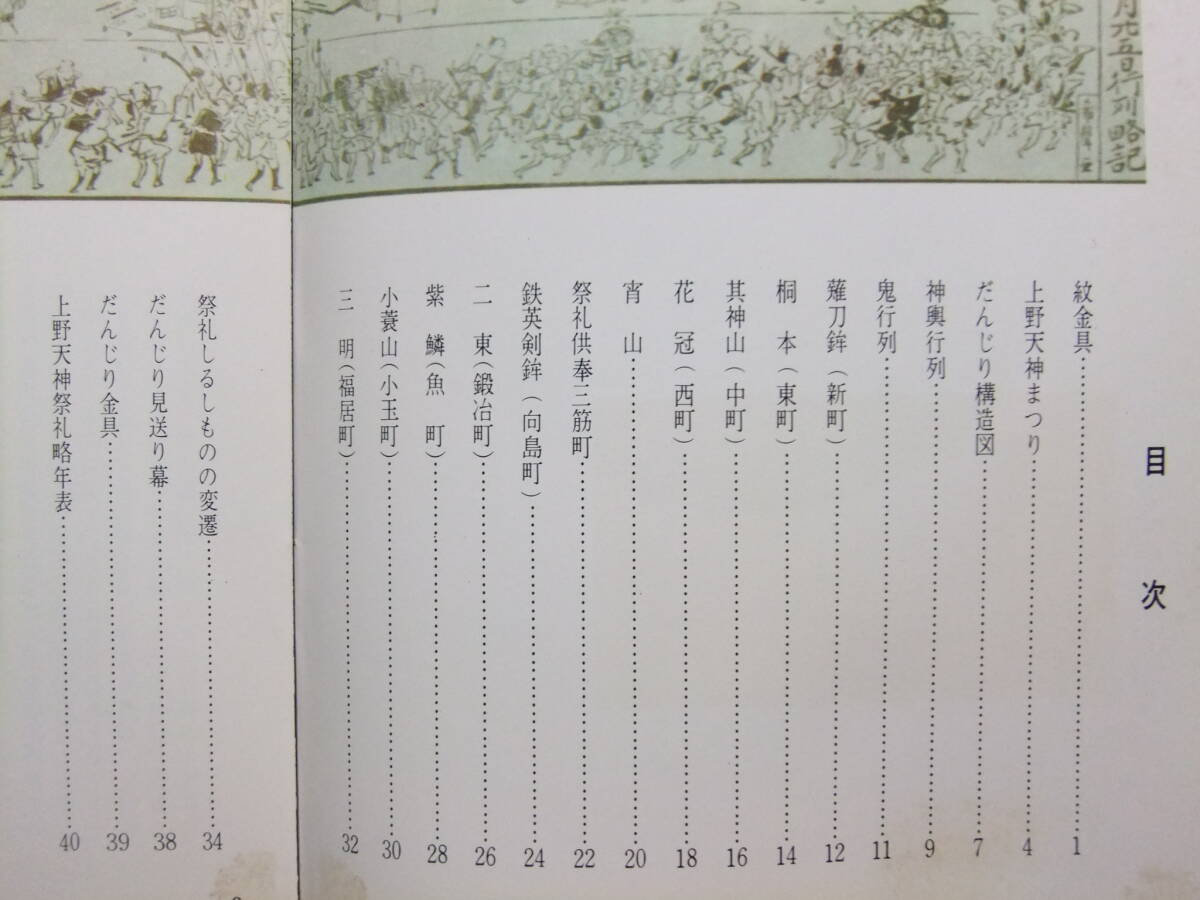 月九五日行列略記
目次
紋金具……1
上野天神まつり……4
だんじり構造図……7
神輿行列……9
鬼行列……11
薙刀鉾(新町)……12
桐本(東町)……14
其神山(中町)……16
花冠(西町)……18
宵山……20
祭礼供奉三筋町……22
鉄英剣鉾(向島町)……24
二東(鍛冶町)……26
紫鱗(魚町)……28
小蓑山(小玉町)……30
三明(福居町)……32
祭礼しるしものの変遷……34
だんじり見送り幕……38
だんじり金具……39
上野天神祭礼略年表……40